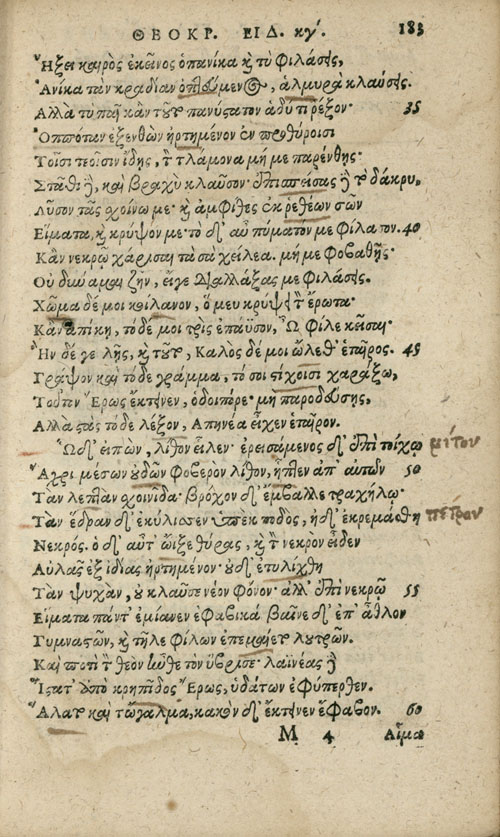 ΘΕΟΚΡ. ΕΙΔ. κγʹ. 183
Ἥξει καιρὸς ἐκεῖνος ὁπανίκα κ̀ τὺ φιλάσῃς,
Ἁνίκα τὰν κραδίαν ὀπτούμενος, ἁλμυρὰ κλαύσῃς.
Ἀλλὰ τὺ παῖ κἂν τοῦτο πανύστατον ἁδύ τι ῥέξον· 35
Ὁππόταν ἐξενθὼν ἠρτημένον ἐν προθύροισι
Τοῖσι τεοῖσιν ἴδῃς, τ̀ τλάμονα μή με παρένθῃς·
Στᾶθι δὲ, καὶ βραχὺ κλαῦσον· ἐπισπείσας δὲ τὸ δάκρυ,
Λῦσον τᾶς χοίνω με· κ̀ ἀμφίθες ἐκ ῥεθέων σῶν
Εἵματα, κ̀ κρύψον με· τὸ δ' αὖ πύματόν με φίλασον. 40
Κἂν νεκρῷ χάρισαι τὰ σὰ χείλεα. μή με φοβαθῇς·
Οὐ δύναμαι ζῆν, εἴγε διαλλάξας με φιλάσῃς.
Χῶμα δέ μοι κοίλανον, ὅ μευ κρύψει τ̀ ἔρωτα·
Κἂν ἀπίῃς, τόδε μοι τρὶς ἐπάϋσον, Ὦ φίλε κεῖσαι·
Ἢν δέ γε λῇς, κ̀ τοῦτο, Καλὸς δέ μοι ὤλεθ' ἑταῖρος. 45
Γράψον καὶ τόδε γράμμα, τό σοι τοίχοισι χαράξω,
Τοῦτον Ἔρως ἔκτεινεν, ὁδοιπόρε· μὴ παροδεύσῃς,
Ἀλλὰ στὰς τόδε λέξον, Ἀπηνέα εἶχεν ἑταῖρον.
Ὣδ' εἰπὼν, λίθον εἷλεν· ἐρεισάμενος δ' ἐπὶ τοίχῳ μίτον
Ἄχρι μέσων ὐδῶν φοβερὸν λίθον, ἧπτεν ἀπ' αὐτῶν 50
Τὰν λεπτὰν σχοινίδα· βρόχον δ' ἔμβαλλε τραχήλῳ·
Τὰν ἕδραν δ' ἐκύλισεν ὑπὲκ ποδὸς, ἠδ' ἐκρεμάσθη πέτραν
Νεκρός. ὁ δ' αὖτ' ὤιξε θύρας, κ̀ τ̀ νεκρὸν εἶδεν
Αὐλᾶς ἐξ ἰδίας ἠρτημένον· οὐδ' ἐτυλίχθη
Τὰν ψυχὰν, οὐ κλαῦσε νέον φόνον· ἀλλ' ἐπὶ νεκρῷ 55
Εἵματα πάντ' ἐμίανεν ἐφαβικά· βαῖνε δ' ἐπ' ἆθλον
Γυμναστῶν, κ̀ τῆλε φίλων ἐπεμαίετο λουτρῶν.
Καὶ ποτὶ τ̀ θεὸν ἦλθε τὸν ὕβρισε· λαϊνέας δὲ
Ἵστατ' ἀπὸ κρηπῖδος Ἔρως, ὑδάτων ἐφύπερθεν.
Ἅλατο καὶ τὤγαλμα, κακὸν δ' ἔκτεινεν ἔφαβον. 60
Μ 4 Αἷμα